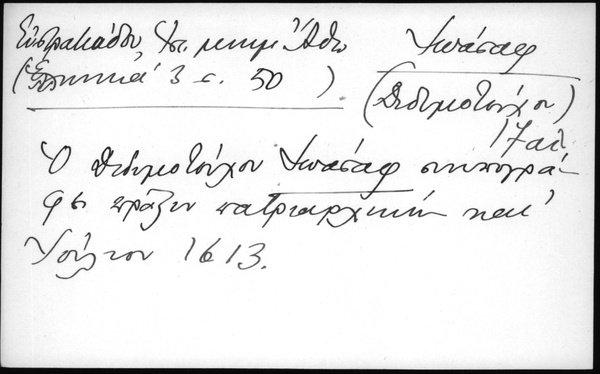 Εὐστρατιάδου, Ἱστ. μνημ. Ἄθω
(Ἑλληνικά 3 σ. 50)
Ἰωάσαφ
(Διδυμοτείχου)
17 αἰ.
Ὁ Διδυμοτείχου Ἰωάσαφ συνυπογρά-
φει πρᾶξιν πατριαρχικήν κατ'
Ἰούλιον 1613.